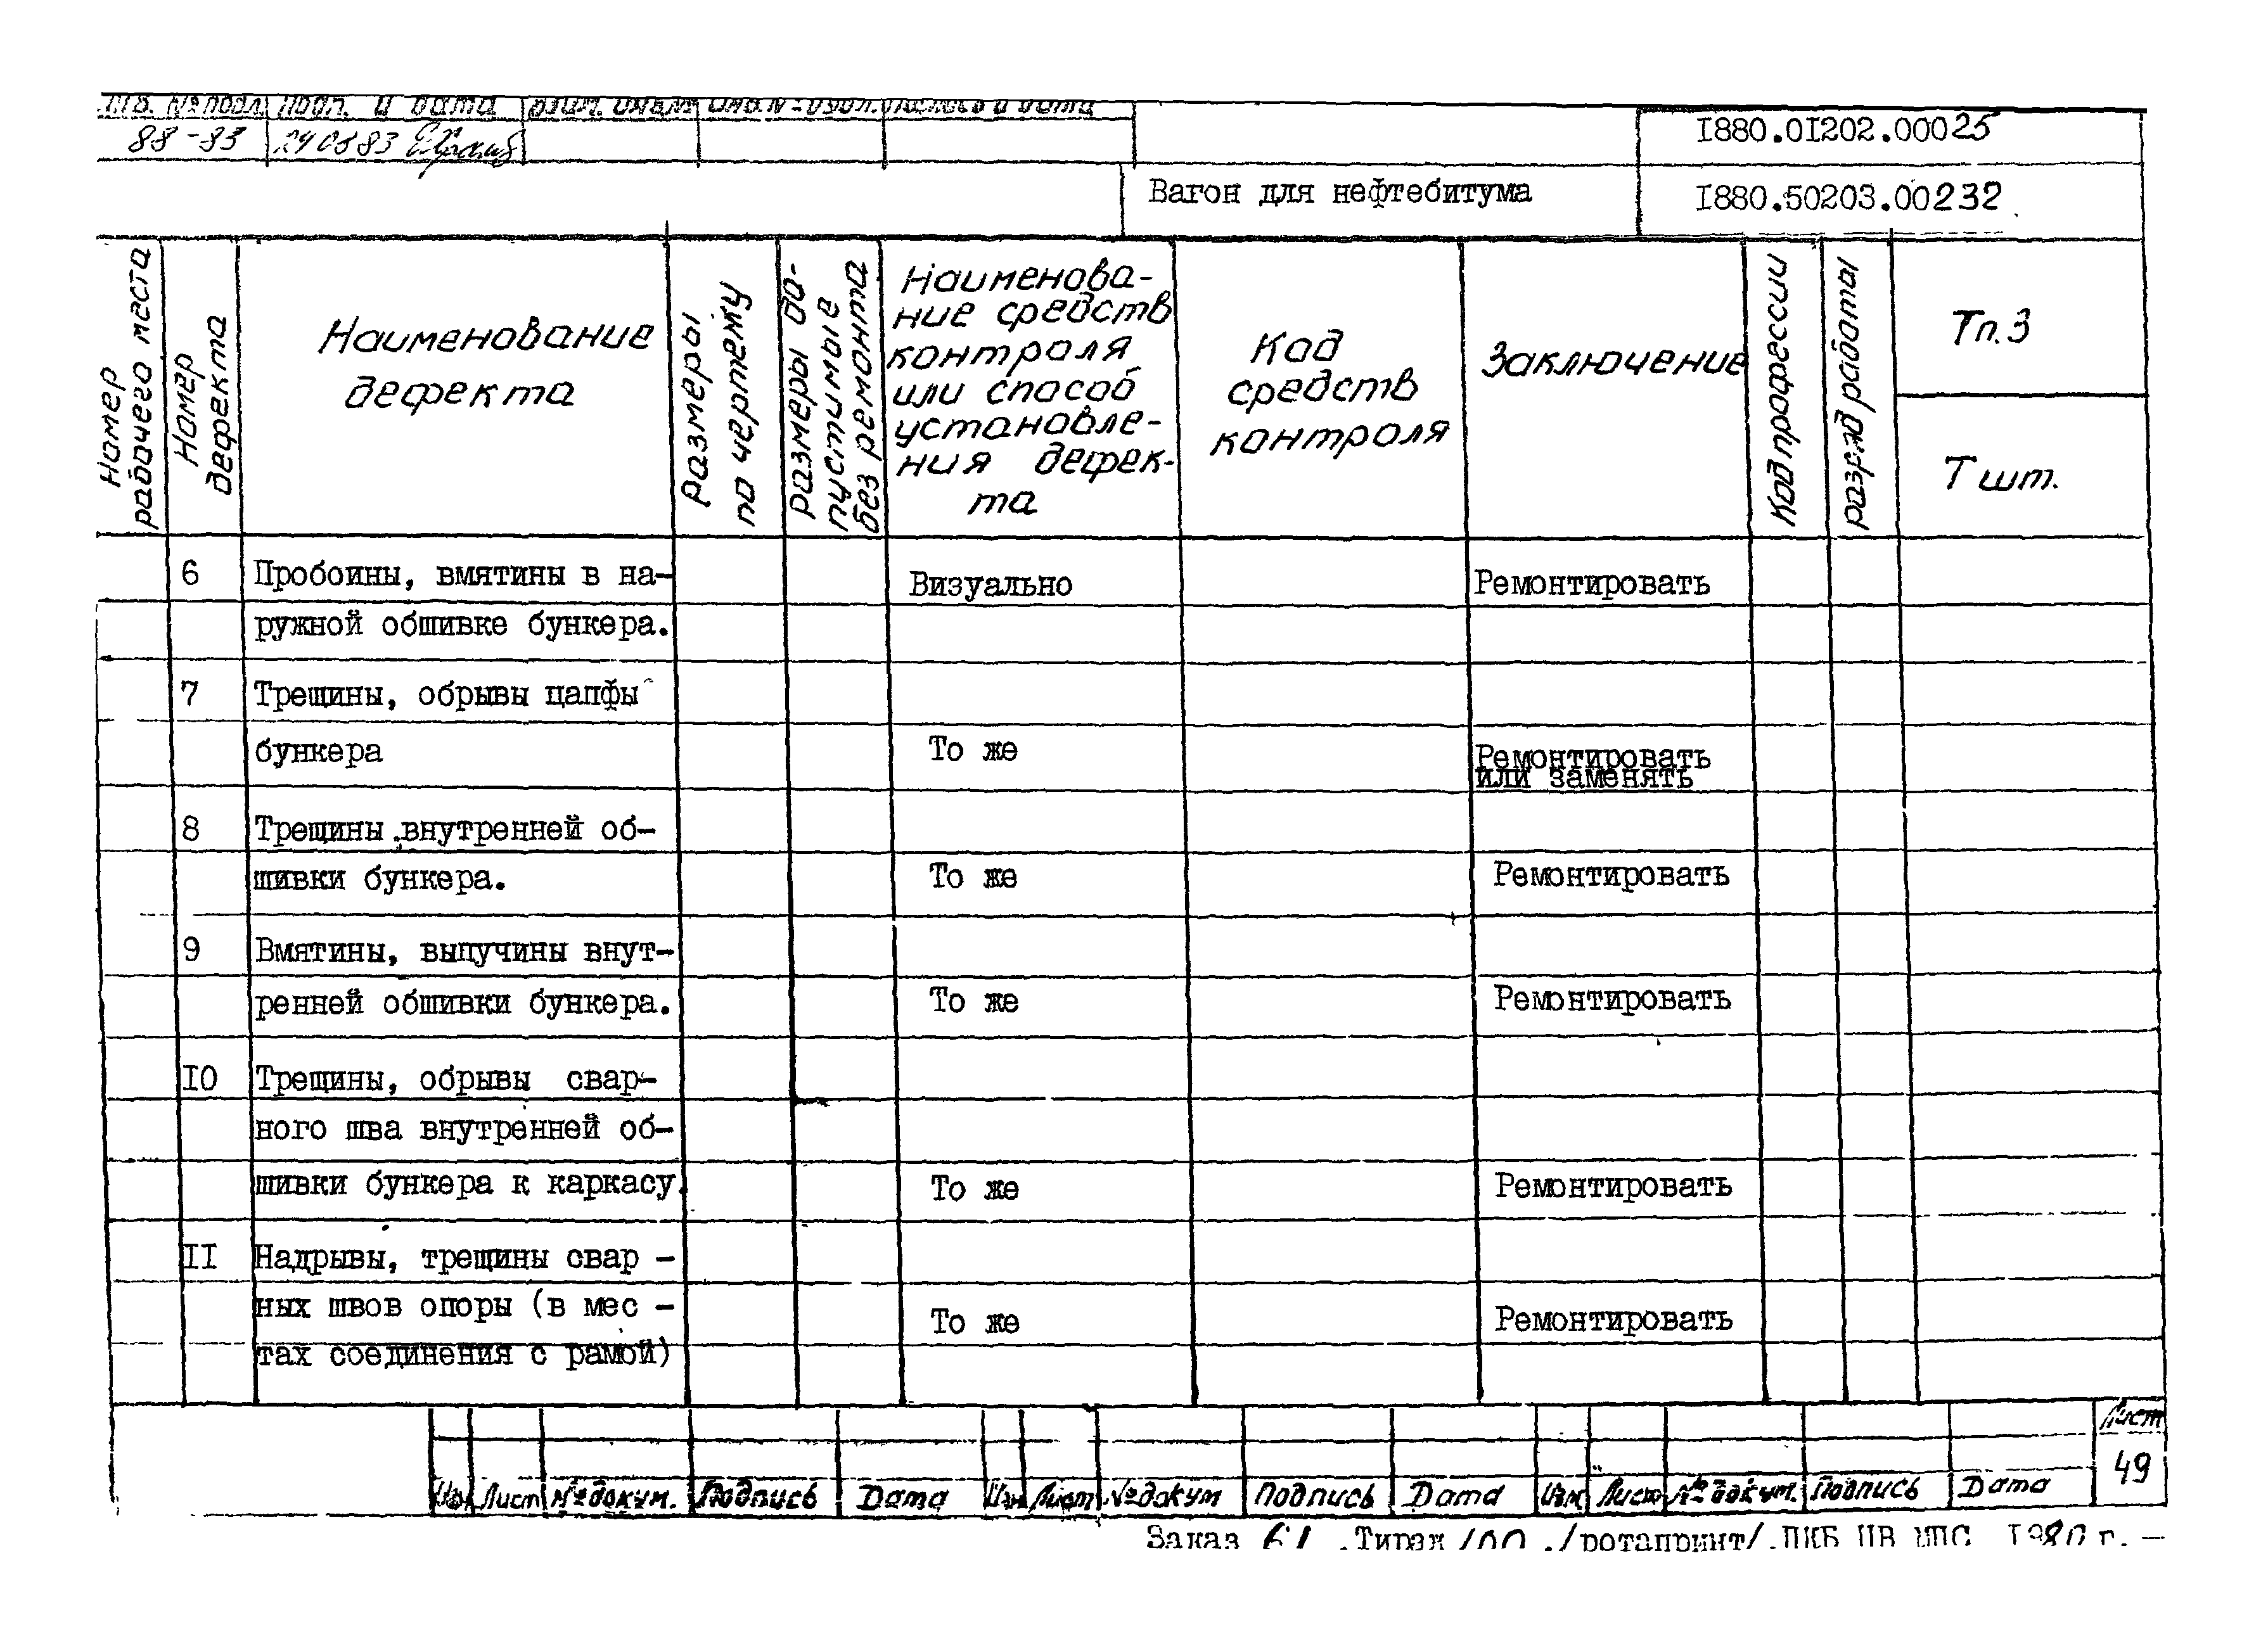 Инв. № подл. Подп. и дата Взам. инв. № Инв. № дубл. Подпись и дата
88-83 240683
I880.0I202.00025
Вагон для нефтебитума
I880.50203.00232
Номер рабочего места
Номер дефекта
Наименование
дефекта
Размеры
по чертежу
Размеры до-
пустимые
без ремонта
Наименова-
ние средств
контроля
или способ
установле-
ния дефек-
та
Код
средств
контроля
Заключение
Код профессии
разряд работы
Тп.З
Т шт.
6 Пробоины, вмятины в на- Визуально Ремонтировать
ружной обшивке бункера.
7 Трещины, обрывы цапфы
бункера То же Ремонтировать
или заменять
8 Трещины внутренней об-
шивки бункера. То же Ремонтировать
9 Вмятины, выпучины внут-
ренней обшивки бункера. То же Ремонтировать
IO Трещины, обрывы свар-
ного шва внутренней об-
шивки бункера к каркасу. То же Ремонтировать
II Надрывы, трещины свар -
ных швов опоры (в мес - То же Ремонтировать
тах соединения с рамой)
Лист
49
Изм Лист № докум. Подпись Дата Изм Лист № докум Подпись Дата Изм Лист № докум. Подпись Дата
Заказ 61 .Тираж 100 ./ротапринт/.ПКБ ЦВ МПС I980 г. —